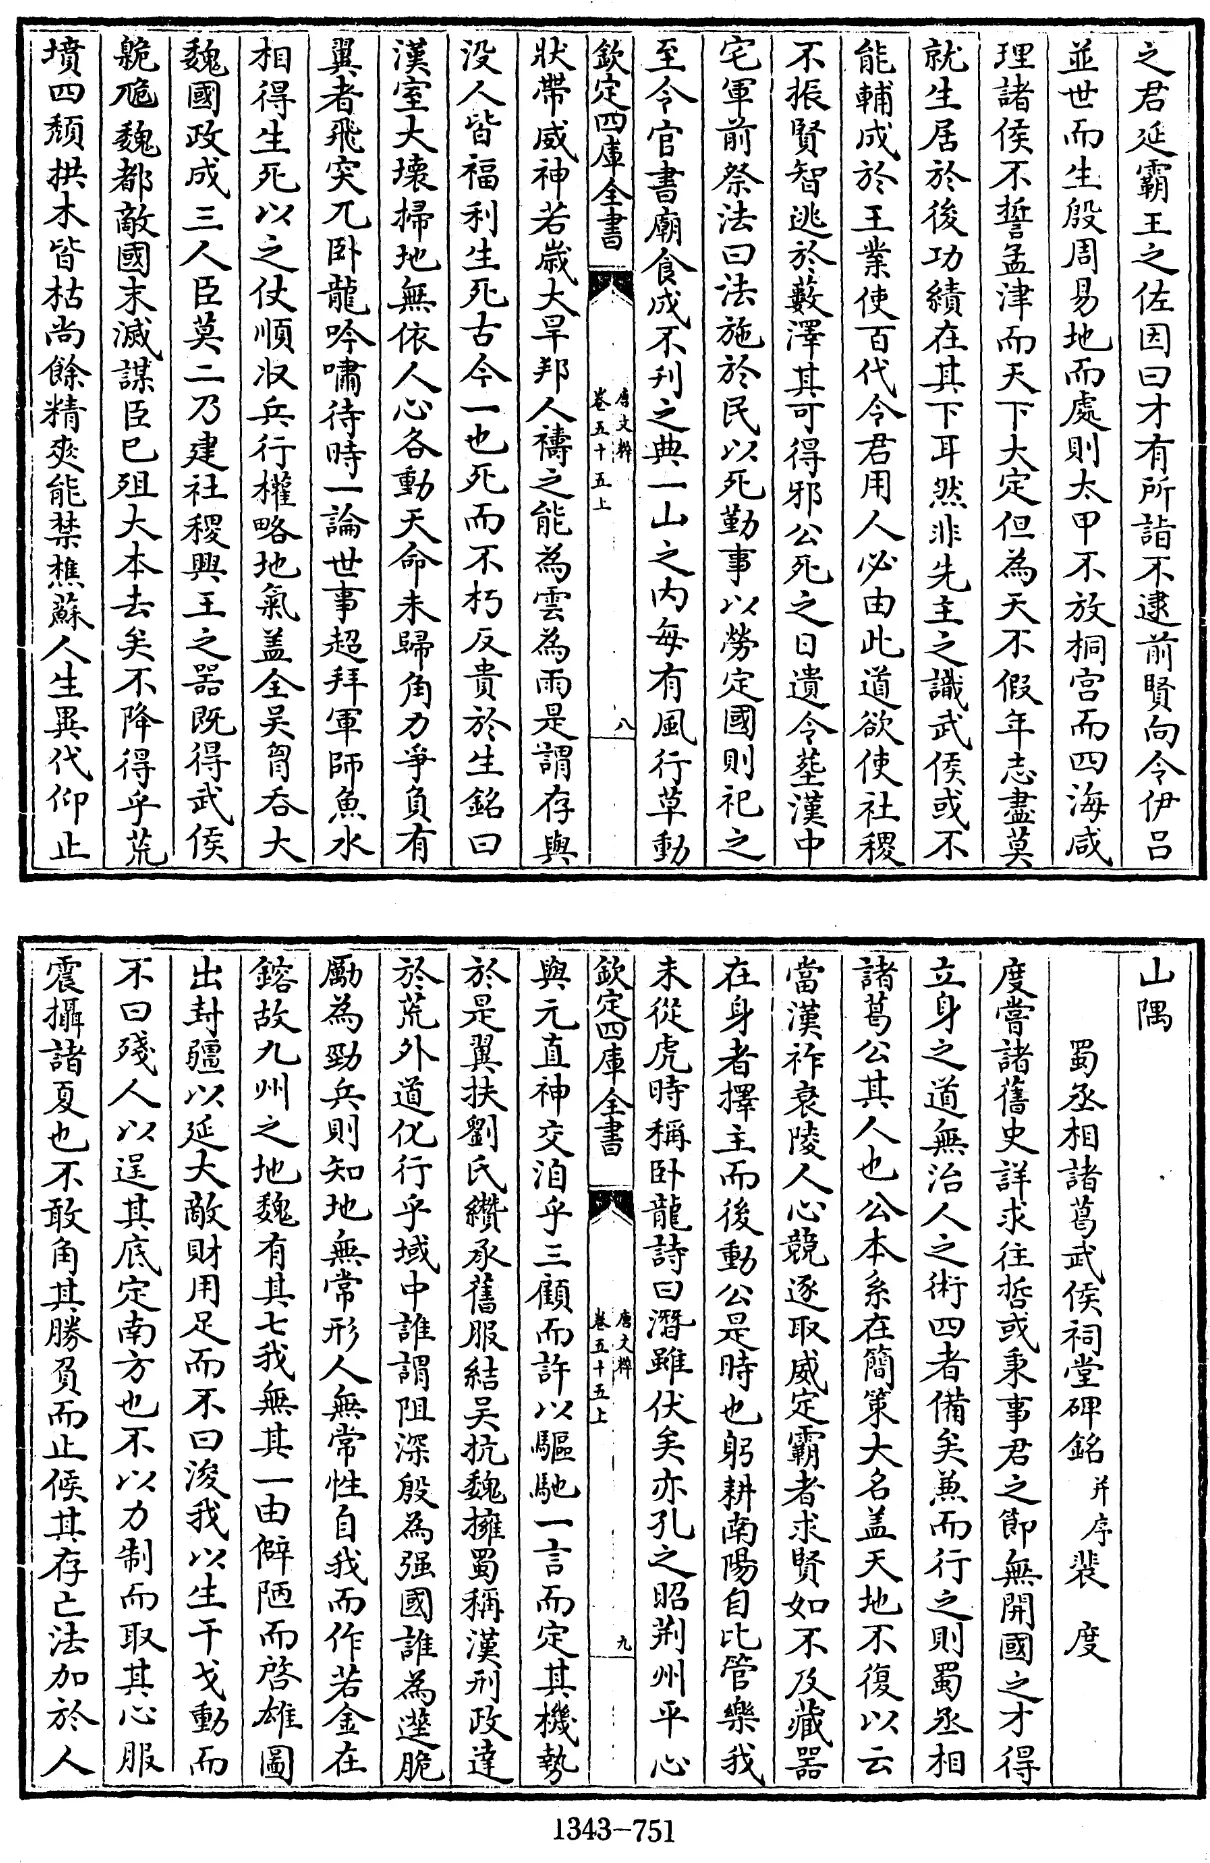 之君延霸王之佐因曰才有所詣不逮前賢向令伊吕
並世而生殷周易地而處則太甲不放桐宫而四海咸
理諸侯不誓孟津而天下大定但為天不假年志盡莫
就生居於後功績在其下耳然非先主之識武侯或不
能輔成於王業使百代令君用人必由此道欲使社稷
不振賢智逃於藪澤其可得邪公死之日遺令塟漢中
宅軍前祭法曰法施於民以死勤事以勞定國則祀之
至今官書廟食成不刋之典一山之内每有風行草動
欽定四庫全書
唐文粹
卷五十五上
八
狀帶威神若嵗大旱邦人禱之能為雲為雨是謂存與
没人皆福利生死古今一也死而不朽反貴於生銘曰
漢室大壊掃地無依人心各動天命未歸角力爭負有
翼者飛突兀卧龍吟嘯待時一論世事超拜軍師魚水
相得生死以之仗順収兵行權略地氣盖全吴胷吞大
魏國政成三人臣莫二乃建社稷興王之器既得武侯
臲卼魏都敵國末滅謀臣已殂大本去矣不降得乎荒
墳四頽拱木皆枯尚餘精爽能禁樵蘇人生異代仰止
山隅
蜀丞相諸葛武侯祠堂碑銘并序 裴度
度嘗諸舊史詳求往哲或秉事君之節無開國之才得
立身之道無治人之術四者備矣兼而行之則蜀丞相
諸葛公其人也公本系在簡策大名盖天地不復以云
當漢祚衰陵人心競逐取威定霸者求賢如不及藏器
在身者擇主而後動公是時也躬耕南陽自比管樂我
未從虎時稱卧龍詩曰潛雖伏矣亦孔之昭荆州平心
欽定四庫全書
唐文粹
卷五十五上
九
與元直神交洎乎三顧而許以驅馳一言而定其機勢
於是翼扶劉氏纘承舊服結吴抗魏擁蜀稱漢刑政達
於荒外道化行乎域中誰謂阻深殷為强國誰為蕞脆
勵為勁兵則知地無常形人無常性自我而作若金在
鎔故九州之地魏有其七我無其一由僻陋而啓雄圖
出封疆以延大敵財用足而不曰浚我以生干戈動而
不曰殘人以逞其底定南方也不以力制而取其心服
震攝諸夏也不敢角其勝負而止候其存亡法加於人
1343-751